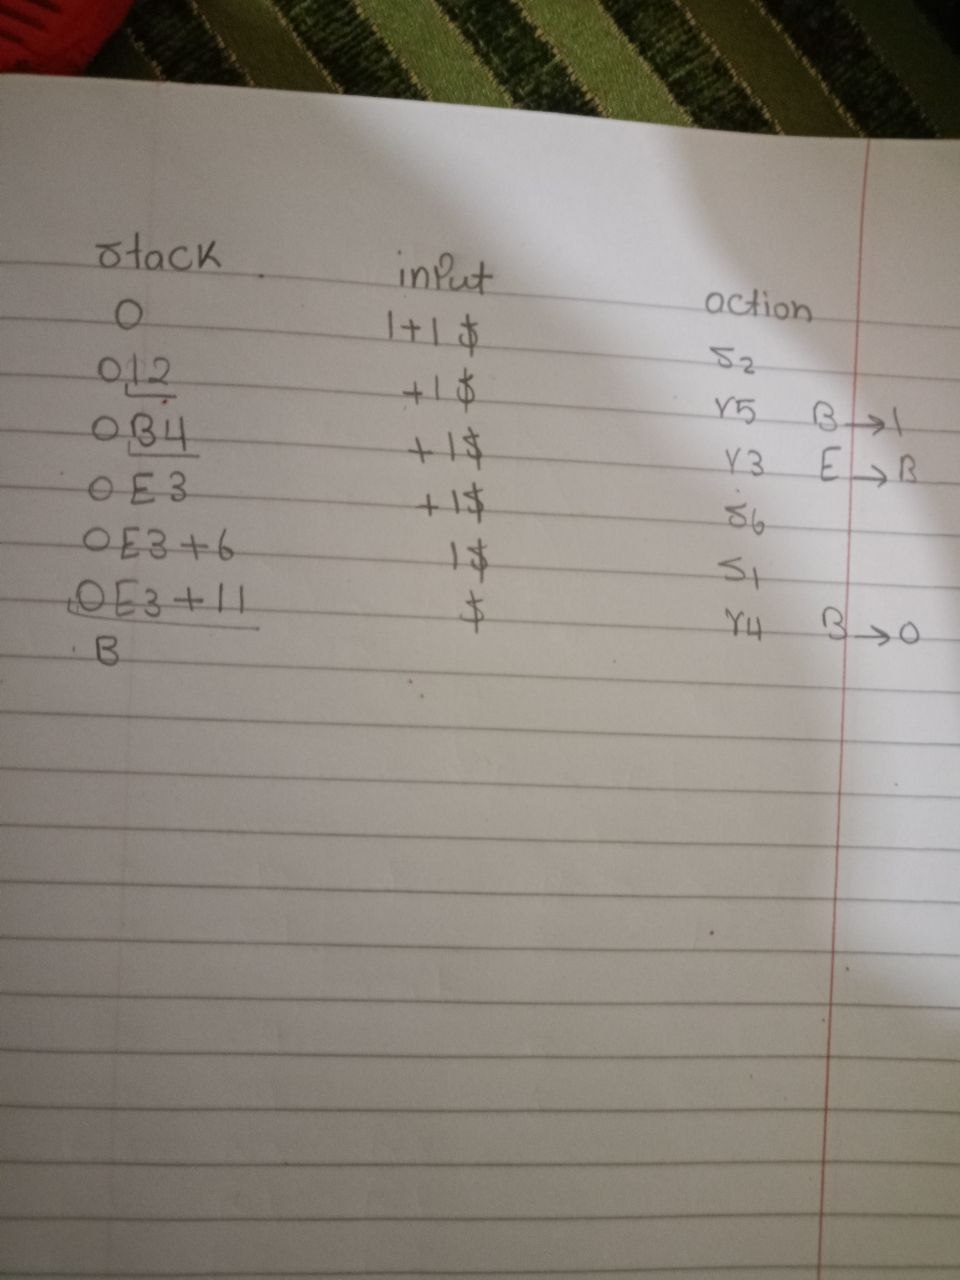 stack input action
0 1+1$ s2
012 +1$ r5 B→1
0B4 +1$ r3 E→B
0E3 +1$ s6
0E3+6 1$ s1
0E3+11 $ r4 B→0
B